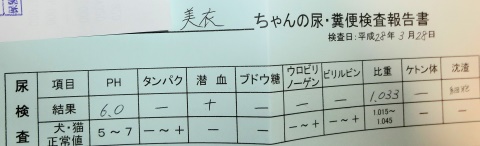 美衣 ちゃんの尿・糞便検査報告書
検査日:平成28年3月28日
尿検査 項目 PH タンパク 潜血 ブドウ糖 ウロビリノーゲン ビリルビン 比重 ケトン体 沈渣
結果 6.0 － ＋ － － － 1.033 －
犬・猫正常値 5～7 －～＋ － － －～＋ －～＋ 1.015～1.045 － －